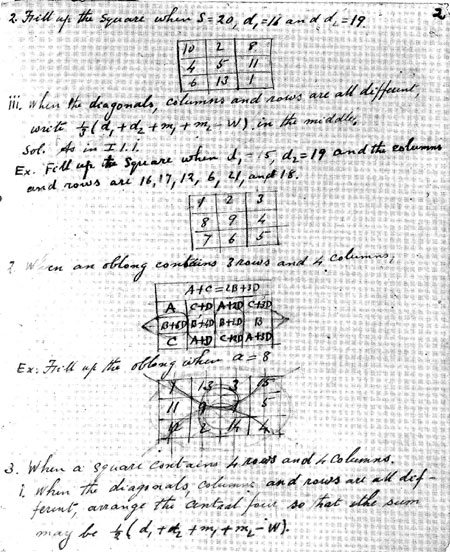 2
2. Fill up the square when S = 20, d₁ = 16 and d₂ = 19
10 2 8
4 5 11
6 13 1
iii. When the diagonals, columns and rows are all different,
write ⅓(d₁ + d₂ + m₁ + m₂ - W) in the middle.
Sol. As in I 1. i.
Ex. Fill up the square when d₁ = 15, d₂ = 19 and the columns
and rows are 16, 17, 12, 6, 21, and 18.
1 2 3
8 9 4
7 6 5
When an oblong contains 3 rows and 4 columns,
A + C = 2B + 3D
A C+D A+2D C+3D
B+2D B
C A+D C+2D A+3D
Ex. Fill up the oblong when a = 8
1 13 3 15
11 9 7 5
12 2 14 4
3. When a square contains 4 rows and 4 columns.
i. When the diagonals, columns and rows are all dif-
ferent, arrange the central four so that the sum
may be ½(d₁ + d₂ + m₁ + m₂ - W).